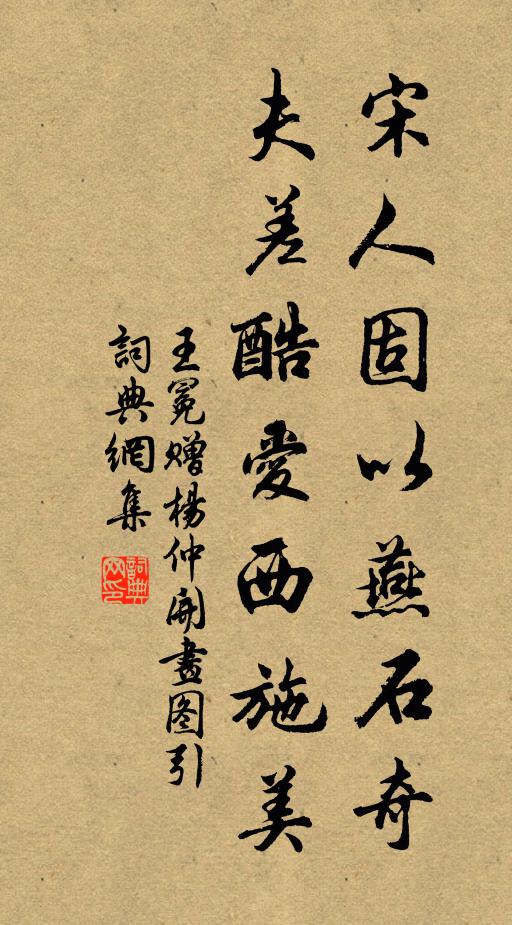 宋人固以燕石奇
夫差酷愛西施美
王冕贈楊仲開畫图引
詞典網集
詞典网印